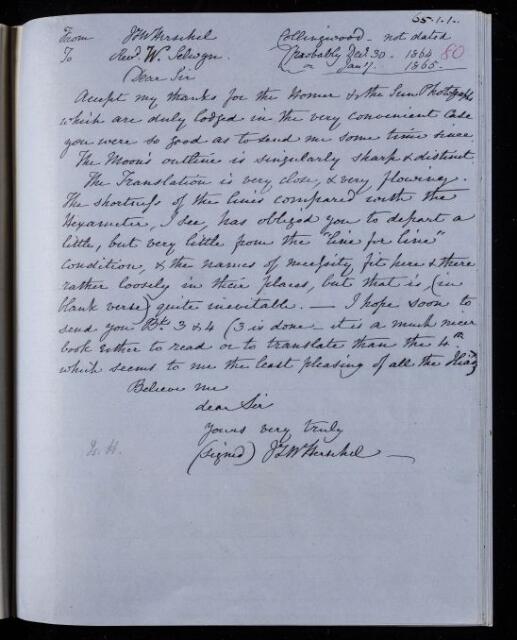 65.1.1.
From JFW Herschel Collingwood - not dated
To Revd. W. Selwyn. (Probably Dec. 30. 1864 80
or Jan 1. 1865
(Dear Sir
Accept my thanks for the Homer & the Sun Photographs
which are duly lodged in the very convenient case
you were so good as to send me some time since
The Moon's outline is singularly sharp & distinct
The Translation is very close, & very flowing.
The shortness of the lines compared with the
Hexameter, I see, has obliged you to depart a
little, but very little from the "line for line"
condition, & the names of necessity fit here & there
rather loosely in their places, but that is (in
blank verse) quite inevitable. — I hope soon to
send you Bks 3 & 4 (3 is done - it is a much nicer
book either to read or to translate than the 4th.
which seems to me the least pleasing of all the Iliad)
Believe me
dear Sir
yours very truly
(signed) JFW Herschel —